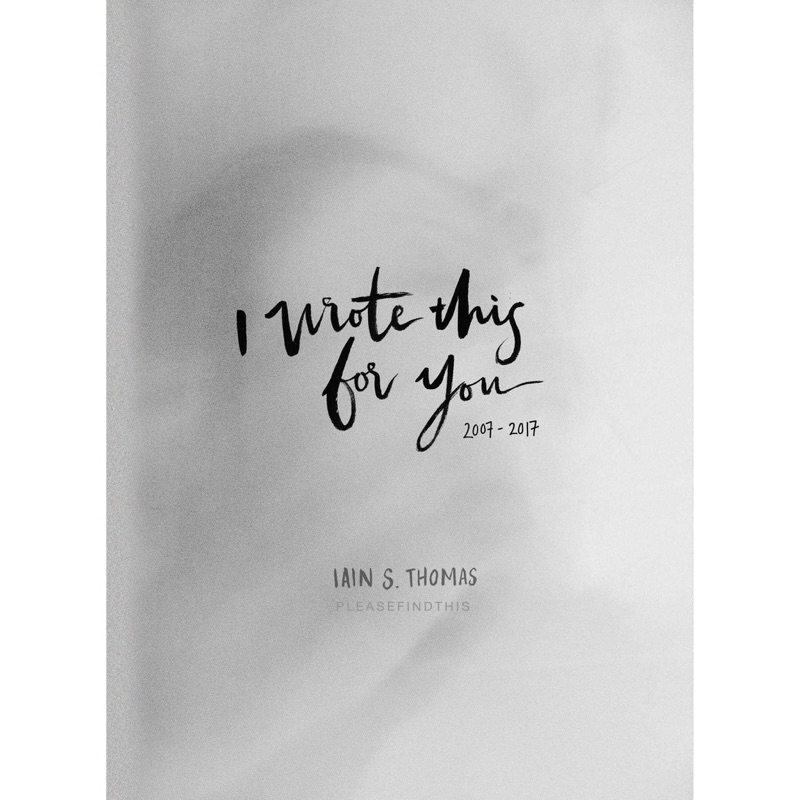 I wrote this
for you
2007 - 2017
IAIN S. THOMAS
PLEASEFINDTHIS